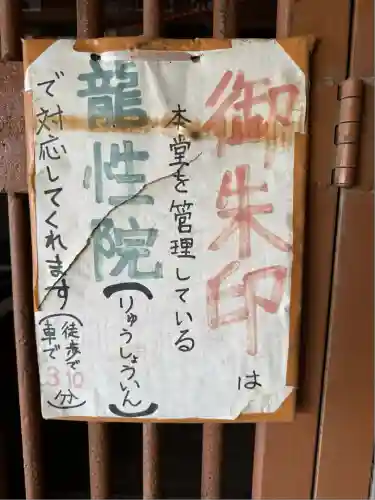 御朱印は
本堂を管理している
龍性院(りゅうしょういん)
で対応してくれます
(徒歩で10分
車で3分)